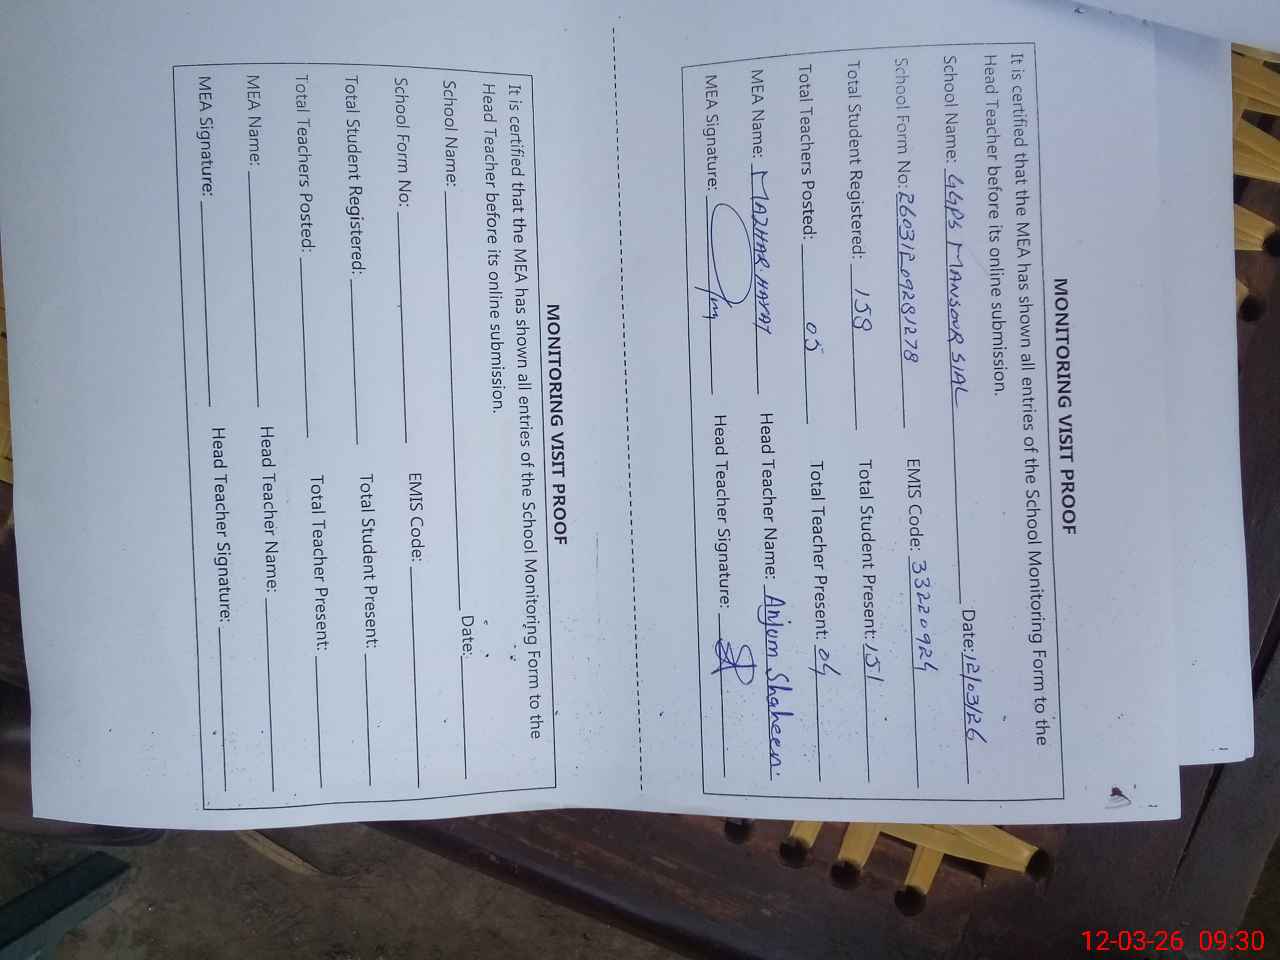 MONITORING VISIT PROOF
It is certified that the MEA has shown all entries of the School Monitoring Form to the
Head Teacher before its online submission.
School Name: GGPS MANSOOR SIAL Date: 12/03/26
School Form No: 26031209281278 EMIS Code: 33220924
Total Student Registered: 158 Total Student Present: 151
Total Teachers Posted: 05 Total Teacher Present: 04
MEA Name: MAZHAR HAYAT Head Teacher Name: Anjum Shaheen.
MEA Signature: Head Teacher Signature:
MONITORING VISIT PROOF
It is certified that the MEA has shown all entries of the School Monitoring Form to the
Head Teacher before its online submission.
School Name: Date:
School Form No: EMIS Code:
Total Student Registered: Total Student Present:
Total Teachers Posted: Total Teacher Present:
MEA Name: Head Teacher Name:
MEA Signature: Head Teacher Signature:
12-03-26 09:30